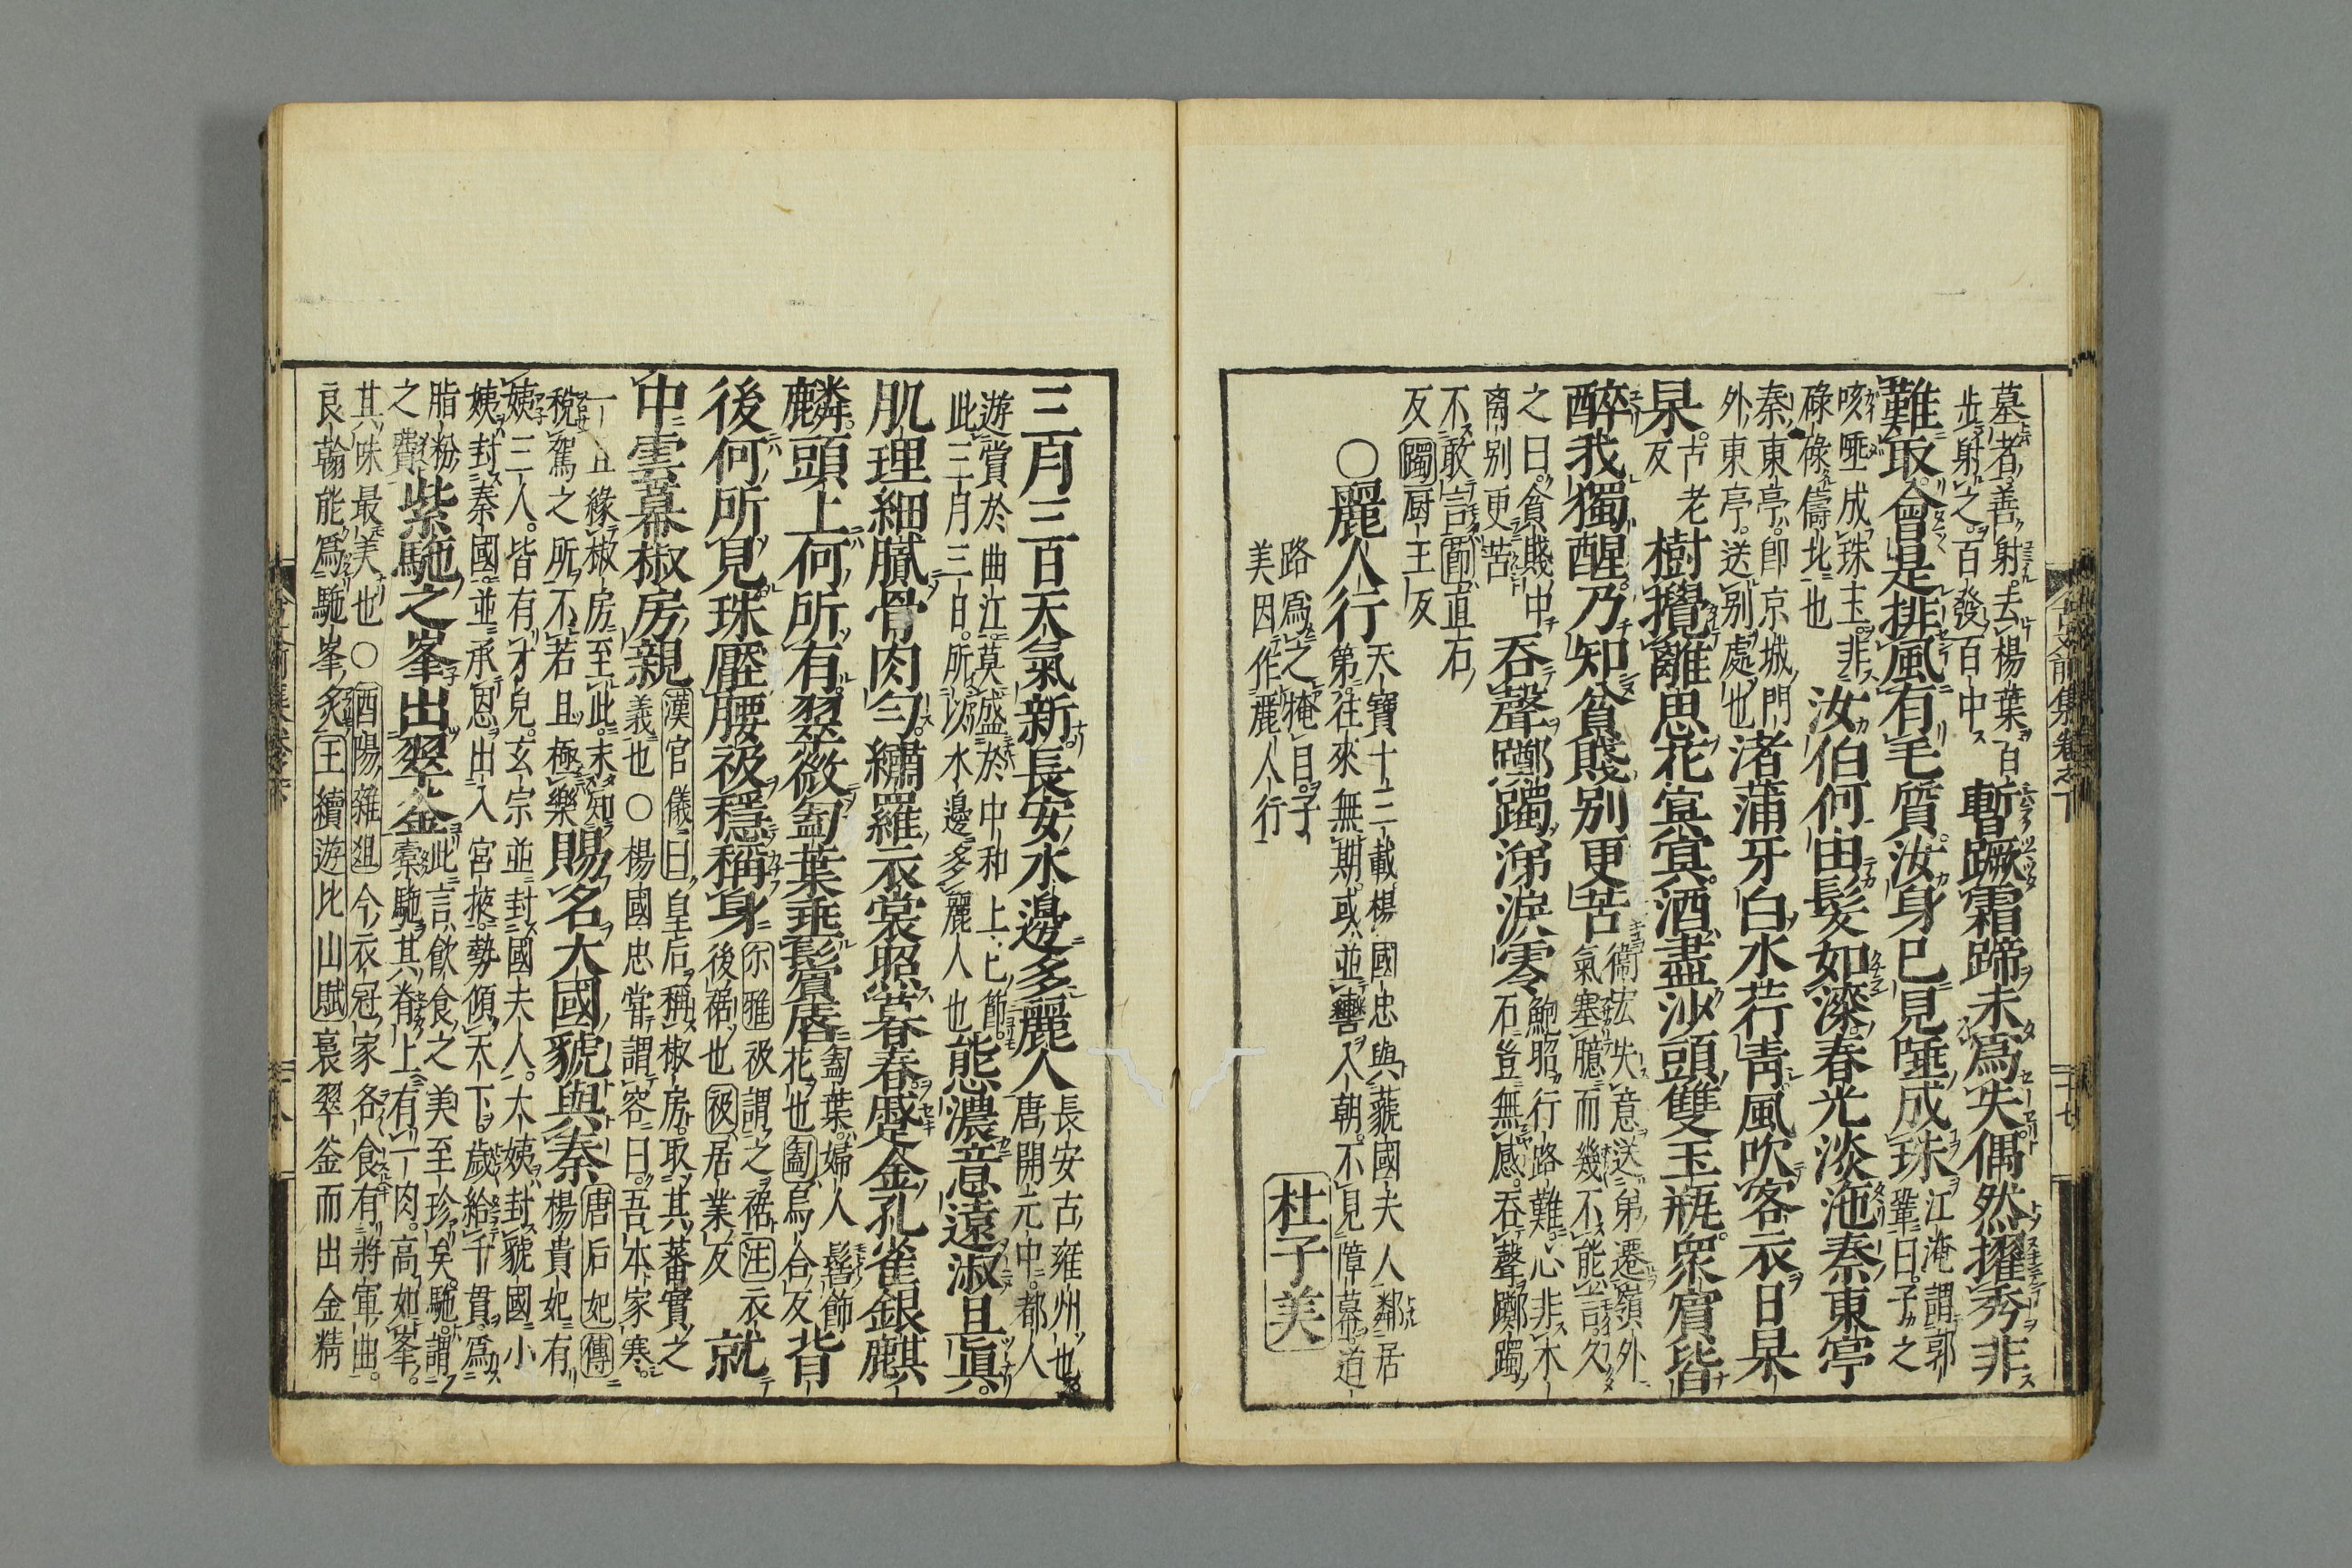 墓者善射去楊葉百
步射之百發百中
暫蹶霜蹄未爲失偶然擢秀非
難取會是排風有毛質汝身已見唾成珠
江淹謂郭
鞏曰子之
咳唾成珠玉非
碌碌儔比也
汝伯何由髮如漆春光淡沲秦東亭
秦東亭即京城門
外東亭送别處也
渚蒲牙白水荇青風吹客衣日杲
杲
古老
反
樹攪離思花冥冥酒盡沙頭雙玉瓶衆賓皆
醉我獨醒乃知貧賤别更苦
衞宏失意送弟遷嶺外
氣塞臆而幾不能言久
之曰貧賤中
离别更苦
吞聲躑躅涕淚零
鮑昭行路難心非木
石豈無感吞聲躑躅
不敢言躑直石
反躅厨王反
○麗人行
天寶十三載楊國忠與虢國夫人鄰居
第往來無期或並轡入朝不見障幕道
路爲之掩目子
美因作麗人行
杜子美
三月三百天氣新長安水邊多麗人
長安古雍州也
唐開元中都人
遊賞於曲江莫盛於中和上巳節
此三月三日所以水邊多麗人也
態濃意遠淑且眞
肌理細膩骨肉勻繡羅衣裳照暮春蹙金孔雀銀麒
麟頭上何所有翠微㔩葉垂鬂脣
㔩葉婦人髻飾
花也㔩烏合反
背
後何所見珠壓腰衱穩稱身
尓雅衱謂之裾注衣
後裾也衱居業反
就
中雲幕椒房親
漢官儀曰皇后稱椒房取其蕃實之
義也○楊國忠嘗謂容曰吾本家寒
一旦緣椒房至此末知
稅駕之所不若且極樂
賜名大國虢與秦
唐后妃傳
楊貴妃有
姨三人皆有才皃玄宗並封國夫人大姨封虢國小
姨封秦國並承恩出入宮掖勢傾天下歲給千貫爲
脂粉
之費
紫駞之峯出翠釜
此言飲食之美至珍矣駞謂
橐駞其脊上有一肉高如峯
其味最美也○酉陽雜俎今衣冠家各食有將軍曲
良翰能爲駞峯炙王績遊北山賦裛翠釜而出金精
古文前集卷之下
二十七